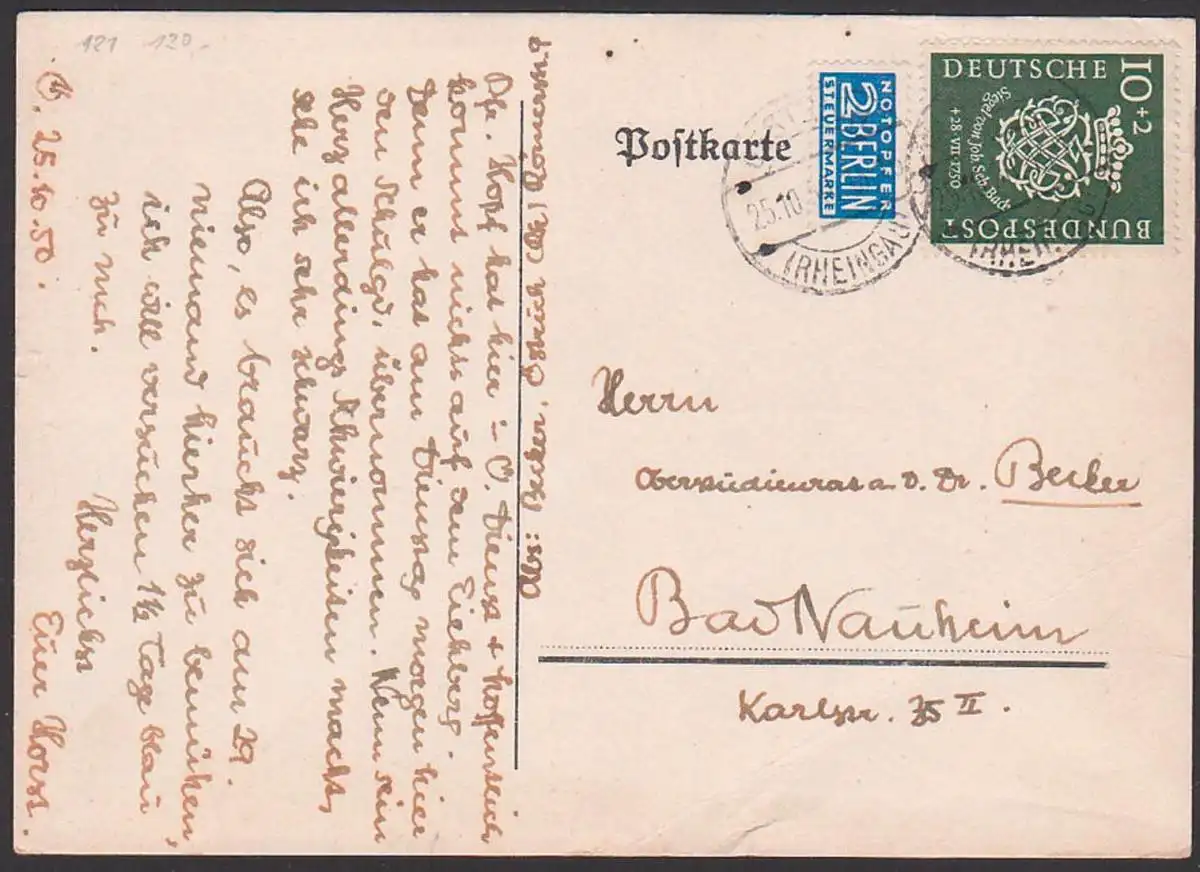 121 120,-
Postkarte
NOTOPFER
2 BERLIN
STEUERMARKE
10+2
DEUTSCHE
BUNDESPOST
Siegel von Joh. Seb. Bach
+ 28·VII·1750
25.10.
(RHEINGAU)
(RHEIN
Herrn
Oberstudienrat a. D. Dr. Becker
Bad Nauheim
Karlstr. 35 II.
Abs: Becker,
25.10.50.
Pfr. Kopf hat hier – O. Dienst + hoffentlich
kommt nichts auf dem Eichberg.
Denn er hat am Dienstag morgen hier
den Schulgd. übernommen. Wenn sein
Herz allerdings Schwierigkeiten macht,
sehe ich sehr schwarz.
Also, es braucht sich am 29.
niemand hierher zu bemühen,
ich will versuchen 1½ Tage blau
zu mach.
Herzlichst
Euer Horst.